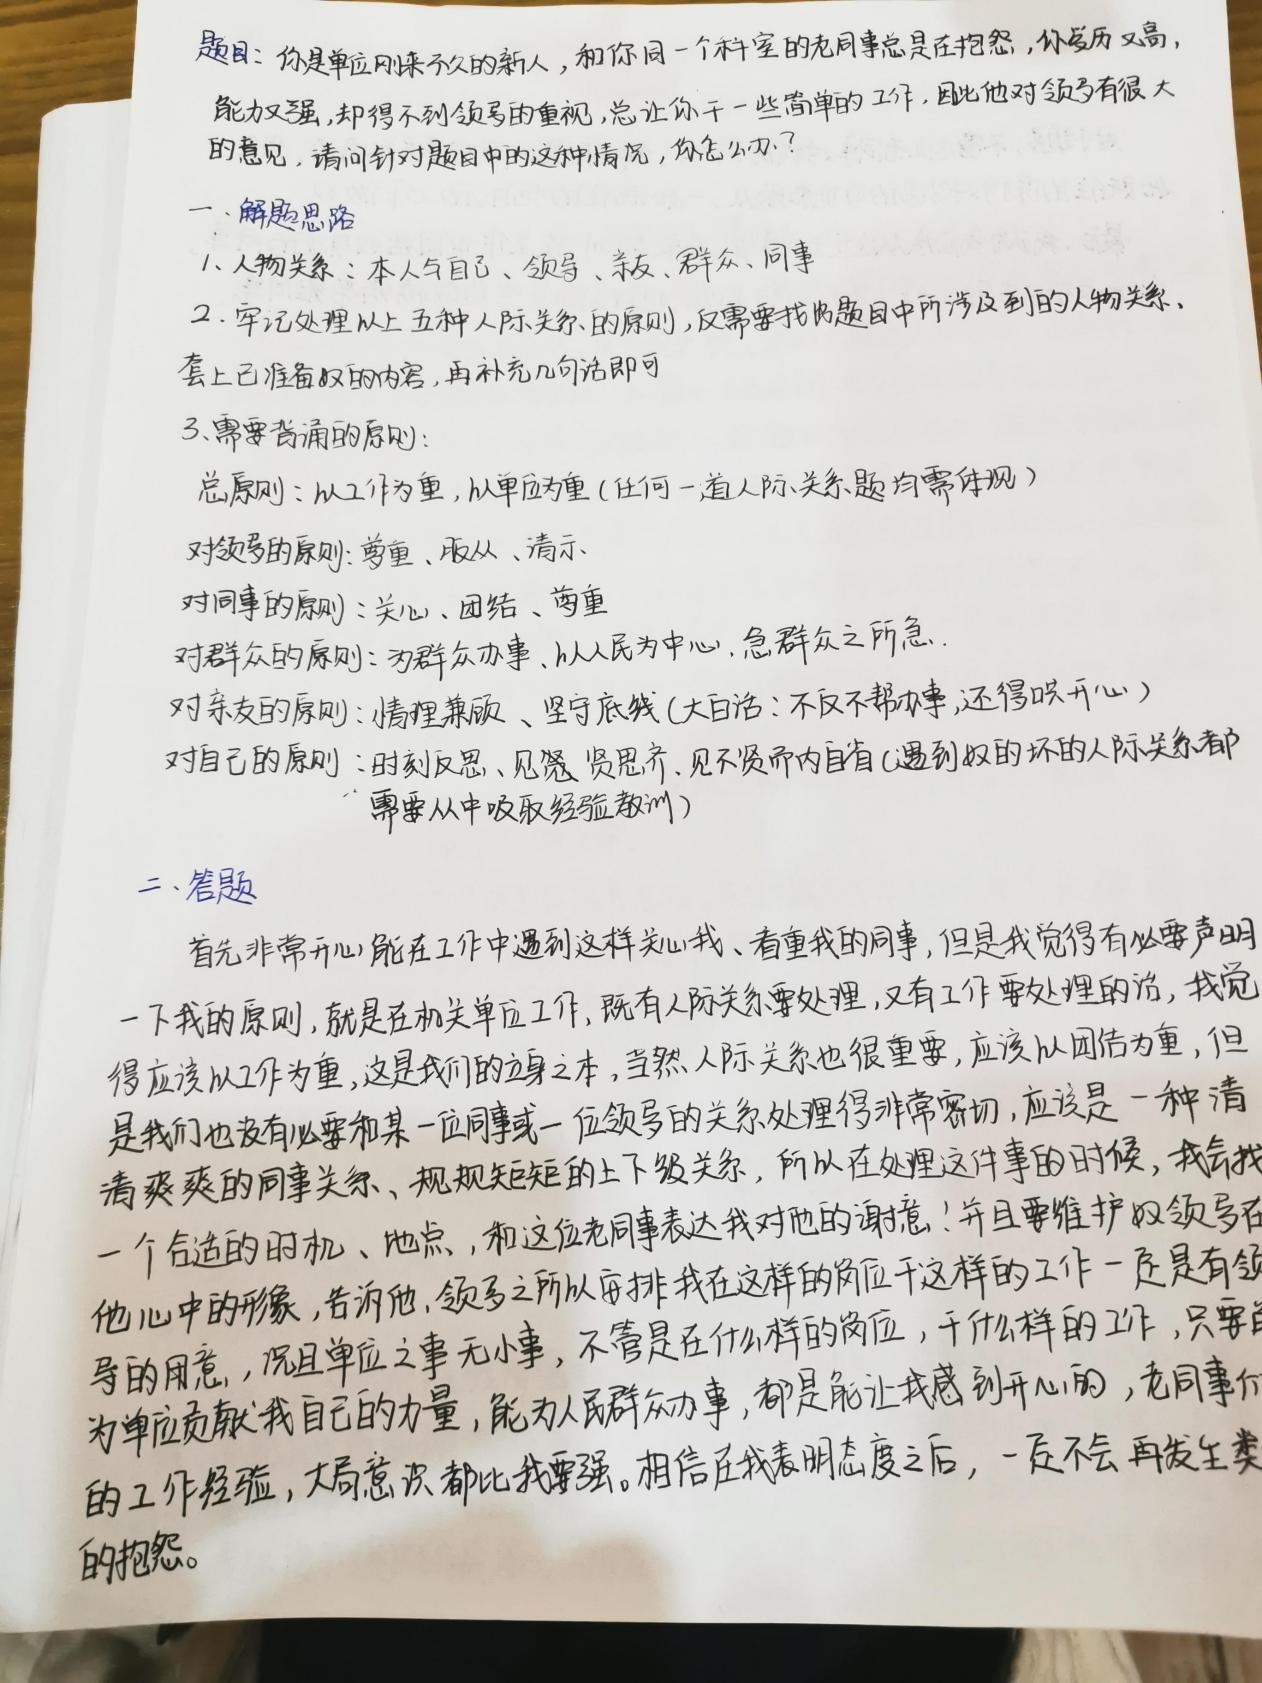 题目：你是单位刚来不久的新人，和你同一个科室的老同事总是在抱怨，你学历又高，
能力又强，却得不到领导的重视，总让你干一些简单的工作，因此他对领导有很大
的意见，请问针对题目中的这种情况，你怎么办？
一、解题思路
1、人物关系：本人与自己、领导、亲友、群众、同事
2．牢记处理以上五种人际关系的原则，反需要找出题目中所涉及到的人物关系、
套上已准备好的内容，再补充几句话即可
3、需要背诵的原则：
总原则：以工作为重，以单位为重（任何一道人际关系题均需体现）
对领导的原则：尊重、服从、请示
对同事的原则：关心、团结、尊重
对群众的原则：为群众办事、以人民为中心、急群众之所急．
对亲友的原则：情理兼顾、坚守底线（大白话：不仅不帮办事，还得哄开心）
对自己的原则：时刻反思、见贤思齐、见不贤而内自省（遇到好的坏的人际关系都
需要从中吸取经验教训）
二、答题
首先非常开心能在工作中遇到这样关心我、看重我的同事，但是我觉得有必要声明
一下我的原则，就是在机关单位工作，既有人际关系要处理，又有工作要处理的话，我觉
得应该以工作为重，这是我们的立身之本，当然人际关系也很重要，应该以团结为重，但
是我们也没有必要和某一位同事或一位领导的关系处理得非常密切，应该是一种清
清爽爽的同事关系、规规矩矩的上下级关系，所以在处理这件事的时候，我会找
一个合适的时机、地点，和这位老同事表达我对他的谢意！并且要维护好领导在
他心中的形象，告诉他，领导之所以安排我在这样的岗位干这样的工作一定是有领
导的用意，况且单位之事无小事，不管是在什么样的岗位，干什么样的工作，只要
为单位贡献我自己的力量，能为人民群众办事，都是能让我感到开心的，老同事
的工作经验，大局意识都比我要强。相信在我表明态度之后，一定不会再发生类
的抱怨。